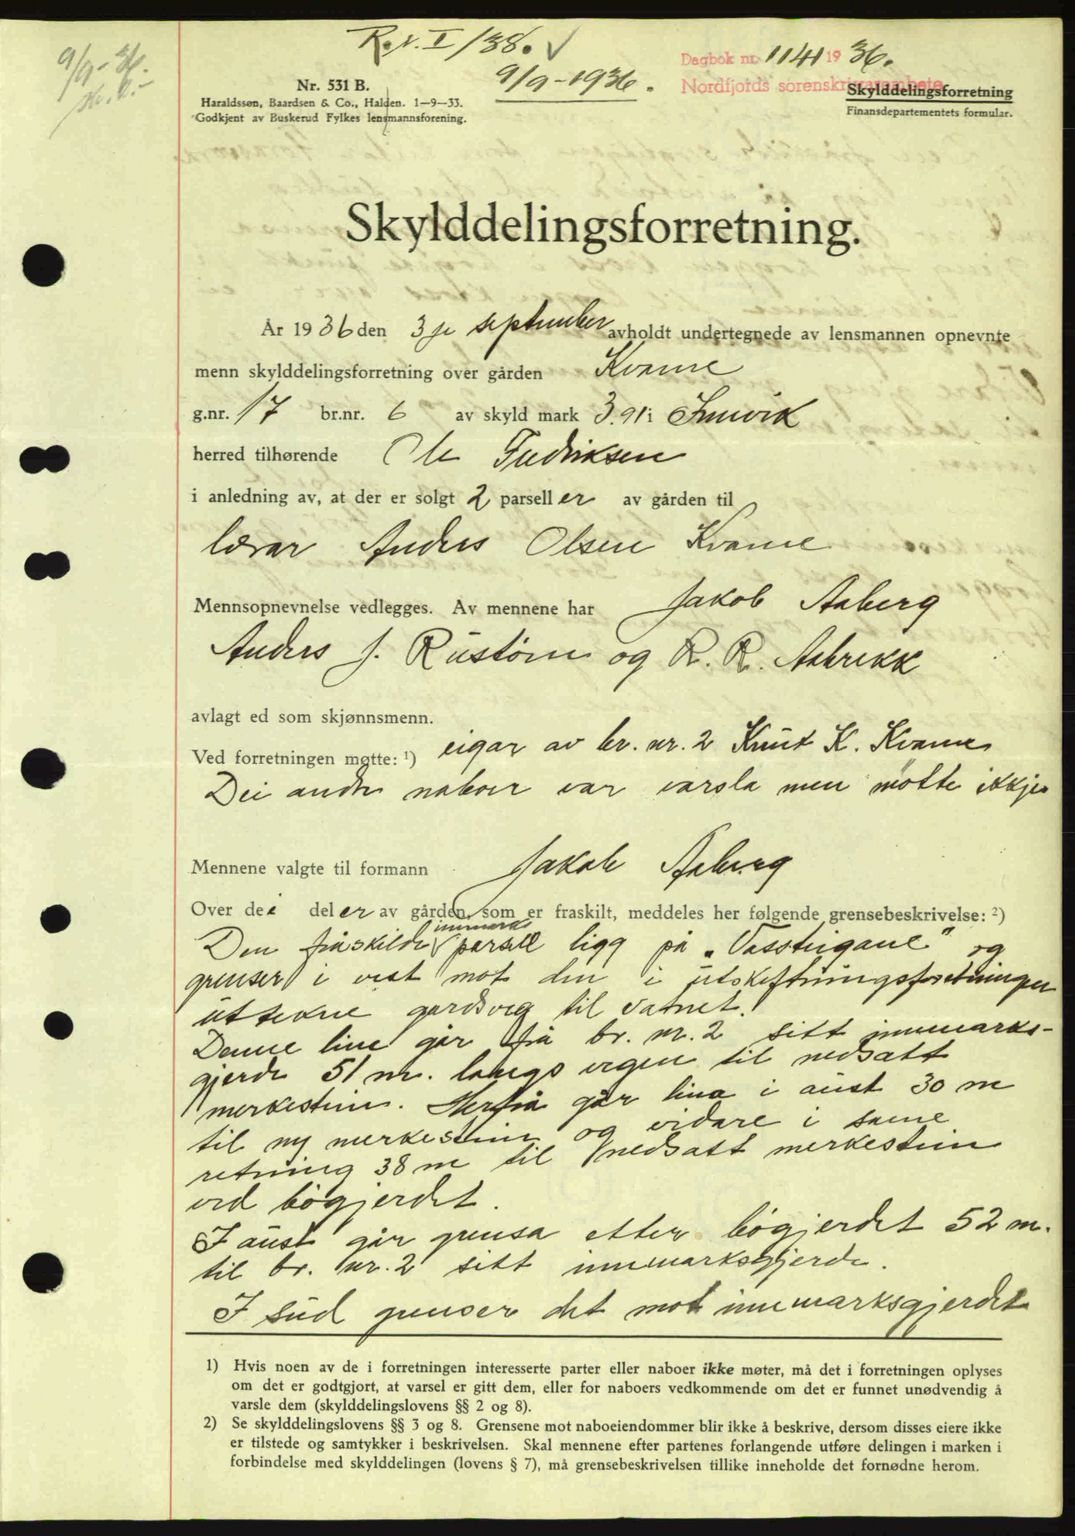 9/9-36.
R.v. I/38. √
9/9-1936.
Dagbok nr. 1141 1936.
Nordfjords sorenskriverembete
Nr. 531 B.
Haraldssøn, Baardsen & Co., Halden. 1—9—33.
Godkjent av Buskerud Fylkes lensmannsforening.
Skylddelingsforretning
Finansdepartementets formular.
Skylddelingsforretning.
År 1936 den 3je september avholdt undertegnede av lensmannen opnevnte
menn skylddelingsforretning over gården Kvame
g.nr. 17 br.nr. 6 av skyld mark 3.91 i Innvik
herred tilhørende Ole Fredriksen
i anledning av, at der er solgt 2 parseller av gården til
lærar Anders Olsen Kvame
Mennsopnevnelse vedlegges. Av mennene har Jakob Aaberg
Anders J. Rustøen og R. R. Aabrekk
avlagt ed som skjønnsmenn.
Ved forretningen møtte: ¹) eigar av br. nr. 2 Knut K. Kvame
Dei andre naboer var varsla men møtte ikkje.
Mennene valgte til formann Jakob Aaberg
Over dei deler av gården, som er fraskilt, meddeles her følgende grensebeskrivelse: ²)
Den fråskilde innmarks parsell ligg på „Vassteigane" og
grenser i vest mot den i utskiftningsforetningen
uttekne gardsveg til vatnet.
Denne line går frå br. nr. 2 sitt innmarks-
gjerde 51 m. langs vegen til nedsatt
merkestein. Herfrå går lina i aust 30 m
til ny merkestein og vidare i same
retning 38 m til nedsatt merkestein
ved bøgjerdet.
I aust går grensa etter bøgjerdet 52 m.
til br. nr. 2 sitt innmarksgjerde.
I sud grenser det mot innmarksgjerdet
1) Hvis noen av de i forretningen interesserte parter eller naboer ikke møter, må det i forretningen oplyses
om det er godtgjort, at varsel er gitt dem, eller for naboers vedkommende om det er funnet unødvendig å
varsle dem (skylddelingslovens §§ 2 og 8).
2) Se skylddelingslovens §§ 3 og 8. Grensene mot naboeiendommer blir ikke å beskrive, dersom disses eiere ikke
er tilstede og samtykker i beskrivelsen. Skal mennene efter partenes forlangende utføre delingen i marken i
forbindelse med skylddelingen (lovens § 7), må grensebeskrivelsen tillike inneholde det fornødne herom.